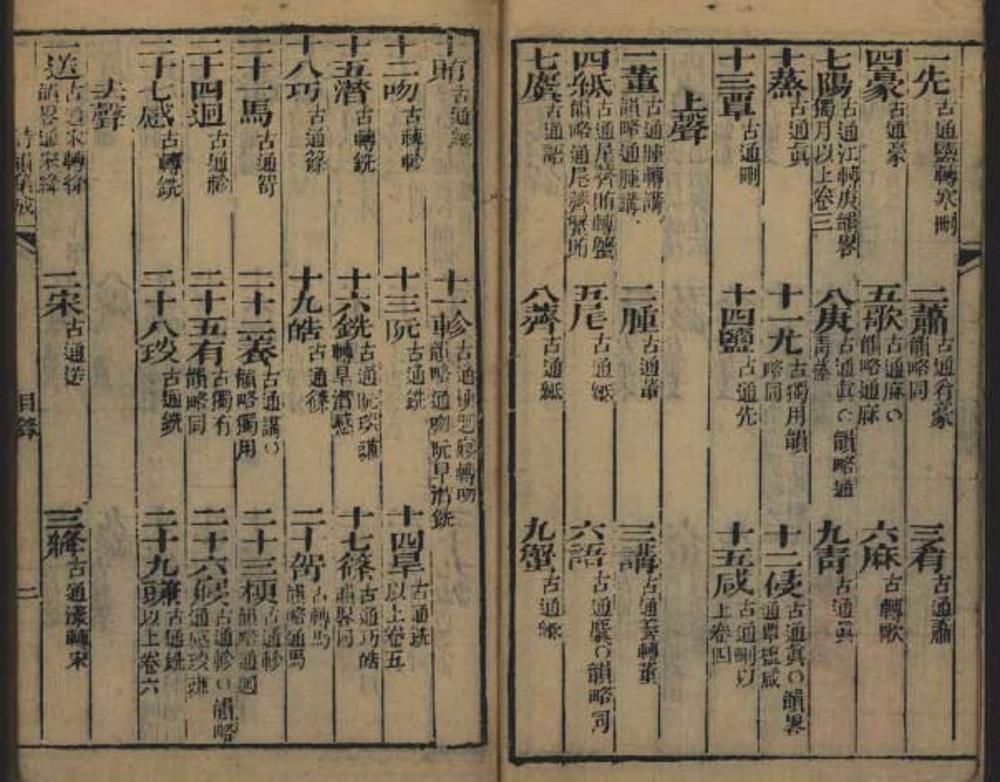 一先 古通鹽轉寒刪 二蕭 古通肴豪韻略同 三肴 古通蕭
四豪 古通豪 五歌 古通麻○韻略通麻 六麻 古轉歌
七陽 古通江轉庚韻畧獨用以上卷三 八庚 古通眞○韻略通青蒸 九青 古通眞
十蒸 古通眞 十一尤 古獨用韻略同 十二侵 古通眞○韻畧通覃鹽咸
十三覃 古通刪 十四鹽 古通先 十五咸 古通刪以上卷四
上聲
一董 古通腫轉講韻略通腫講 二腫 古通董 三講 古通養轉董
四紙 古通尾薺賄轉蟹韻略通尾薺蟹賄 五尾 古通紙 六語 古通麌○韻略同
七麌 古通語 八薺 古通紙 九蟹 古通紙
十賄 古通紙 十一軫 古通梗迥寢轉吻韻略通吻阮旱潸銑
十二吻 古轉軫 十三阮 古通銑 十四旱 古通銑以上卷五
十五潸 古轉銑 十六銑 古通阮琰豏轉旱潸感 十七篠 古通巧皓韻畧同
十八巧 古通篠 十九皓 古通篠 二十哿 古轉馬韻略通馬
二十一馬 古通哿 二十二養 古通講○韻略獨用 二十三梗 古通軫韻略通迥
二十四迥 古通軫 二十五有 古獨有韻略同 二十六寢 古通軫○韻略通感琰豏
二十七感 古轉銑 二十八琰 古通銑 二十九豏 古通銑以上卷六
去聲
一送 古通宋轉絳韻畧通宋絳 二宋 古通送 三絳 古通漾轉宋
詩韻集成 目錄 二